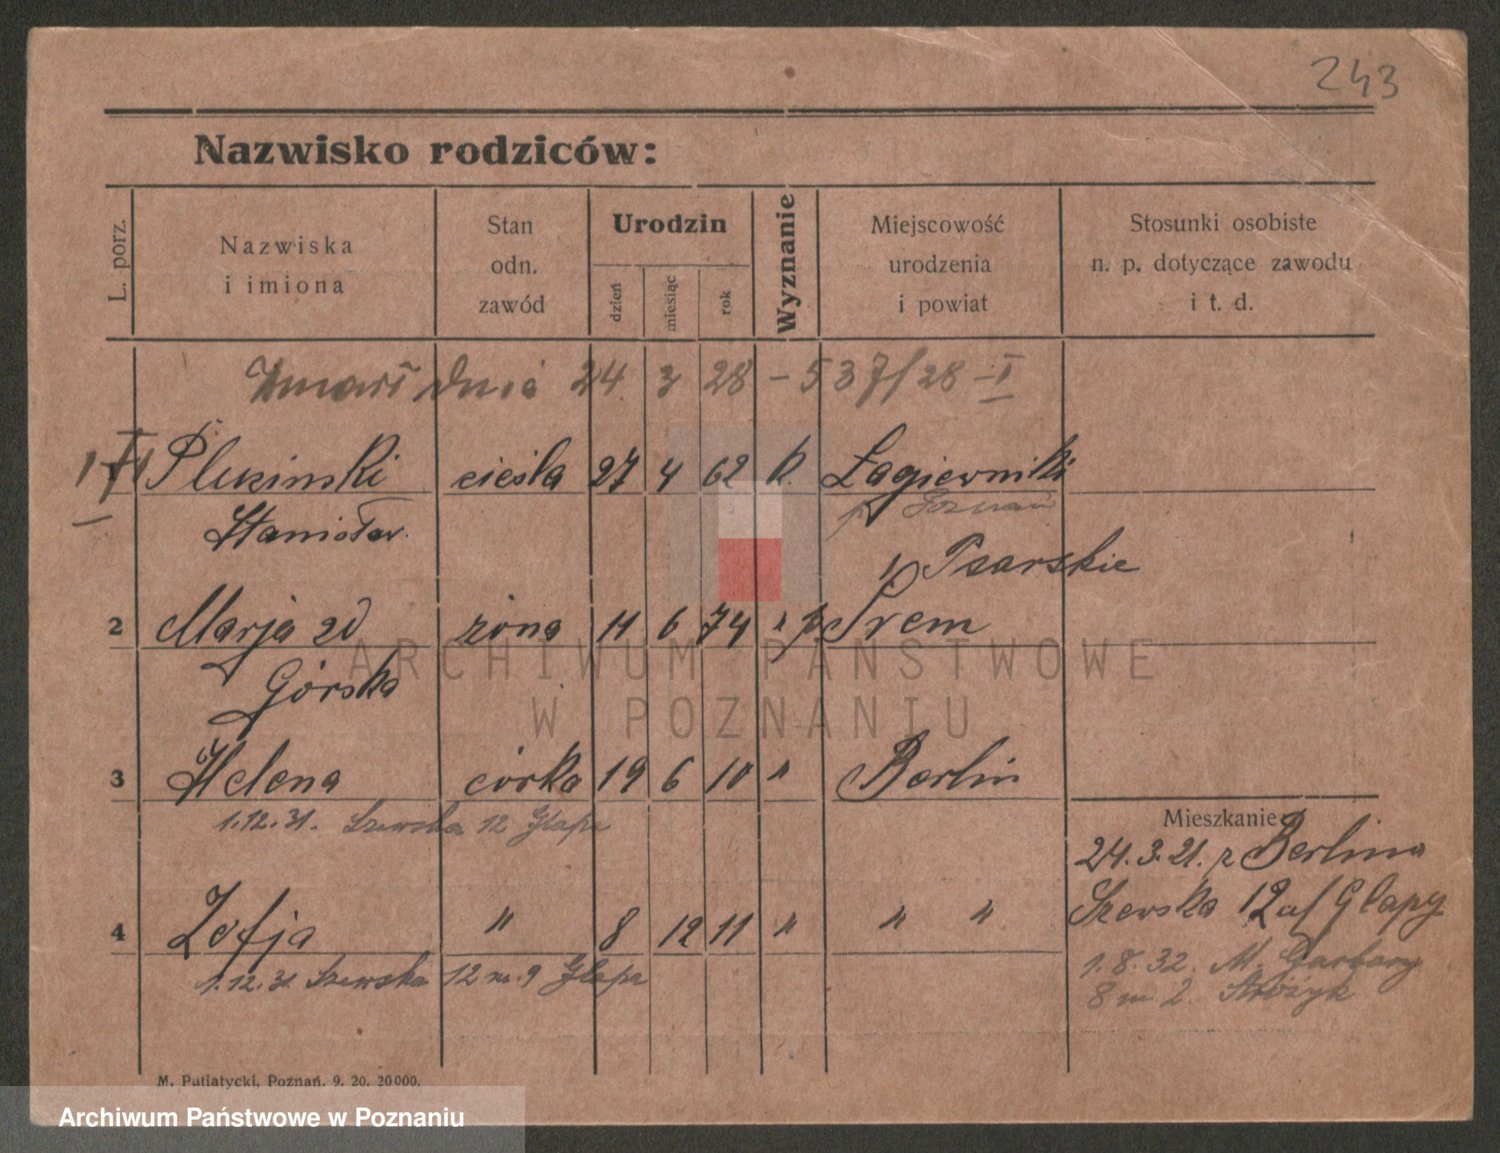 243
Nazwisko rodziców:
L. porz.
Nazwiska
i imiona
Stan
odn.
zawód
Urodzin
dzień
miesiąc
rok
Wyznanie
Miejscowość
urodzenia
i powiat
Stosunki osobiste
n. p. dotyczące zawodu
i t. d.
Zmarł dnia 24 3 28 - 537/28 - I
1 Pluzinski cieśla 27 4 62 k. Łagiewniki
Stanisław p. Poznań
Psarskie
2 Marja zd żona 11 6 74 " p Śrem
Górska
3 Helena córka 19 6 10 " Berlin
1.12.31. Szewska 12 Glapa
Mieszkanie
24.3.21. z Berlina
4 Zofja " 8 12 11 " " "
Szewska 12 a/ Glapy
1.12.31 Szewska 12 m. 9 Glapa
1.8.32. M. Garbary
8 m 2.
M. Putiatycki, Poznań. 9. 20. 20000.
ARCHIWUM PAŃSTWOWE
W POZNANIU
Archiwum Państwowe w Poznaniu